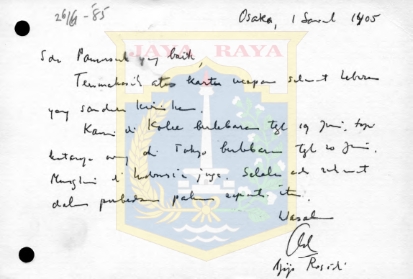 26/6-'85
Osaka, 1 Sawal 1405
JAYA RAYA
Sdr. Pamusuk yang baik,
Terimakasih atas kartu ucapan selamat lebaran
yang sandara kirimkan.
Kami di Kobe berlebaran tgl 19 Juni, tapi
katanya orang di Tokyo berlebaran tgl 20 Juni.
Mungkin di Indonesia juga. Selalu ada selamat
dalam perbedaan paham seperti itu.
Wasalam
Ajip Rosidi